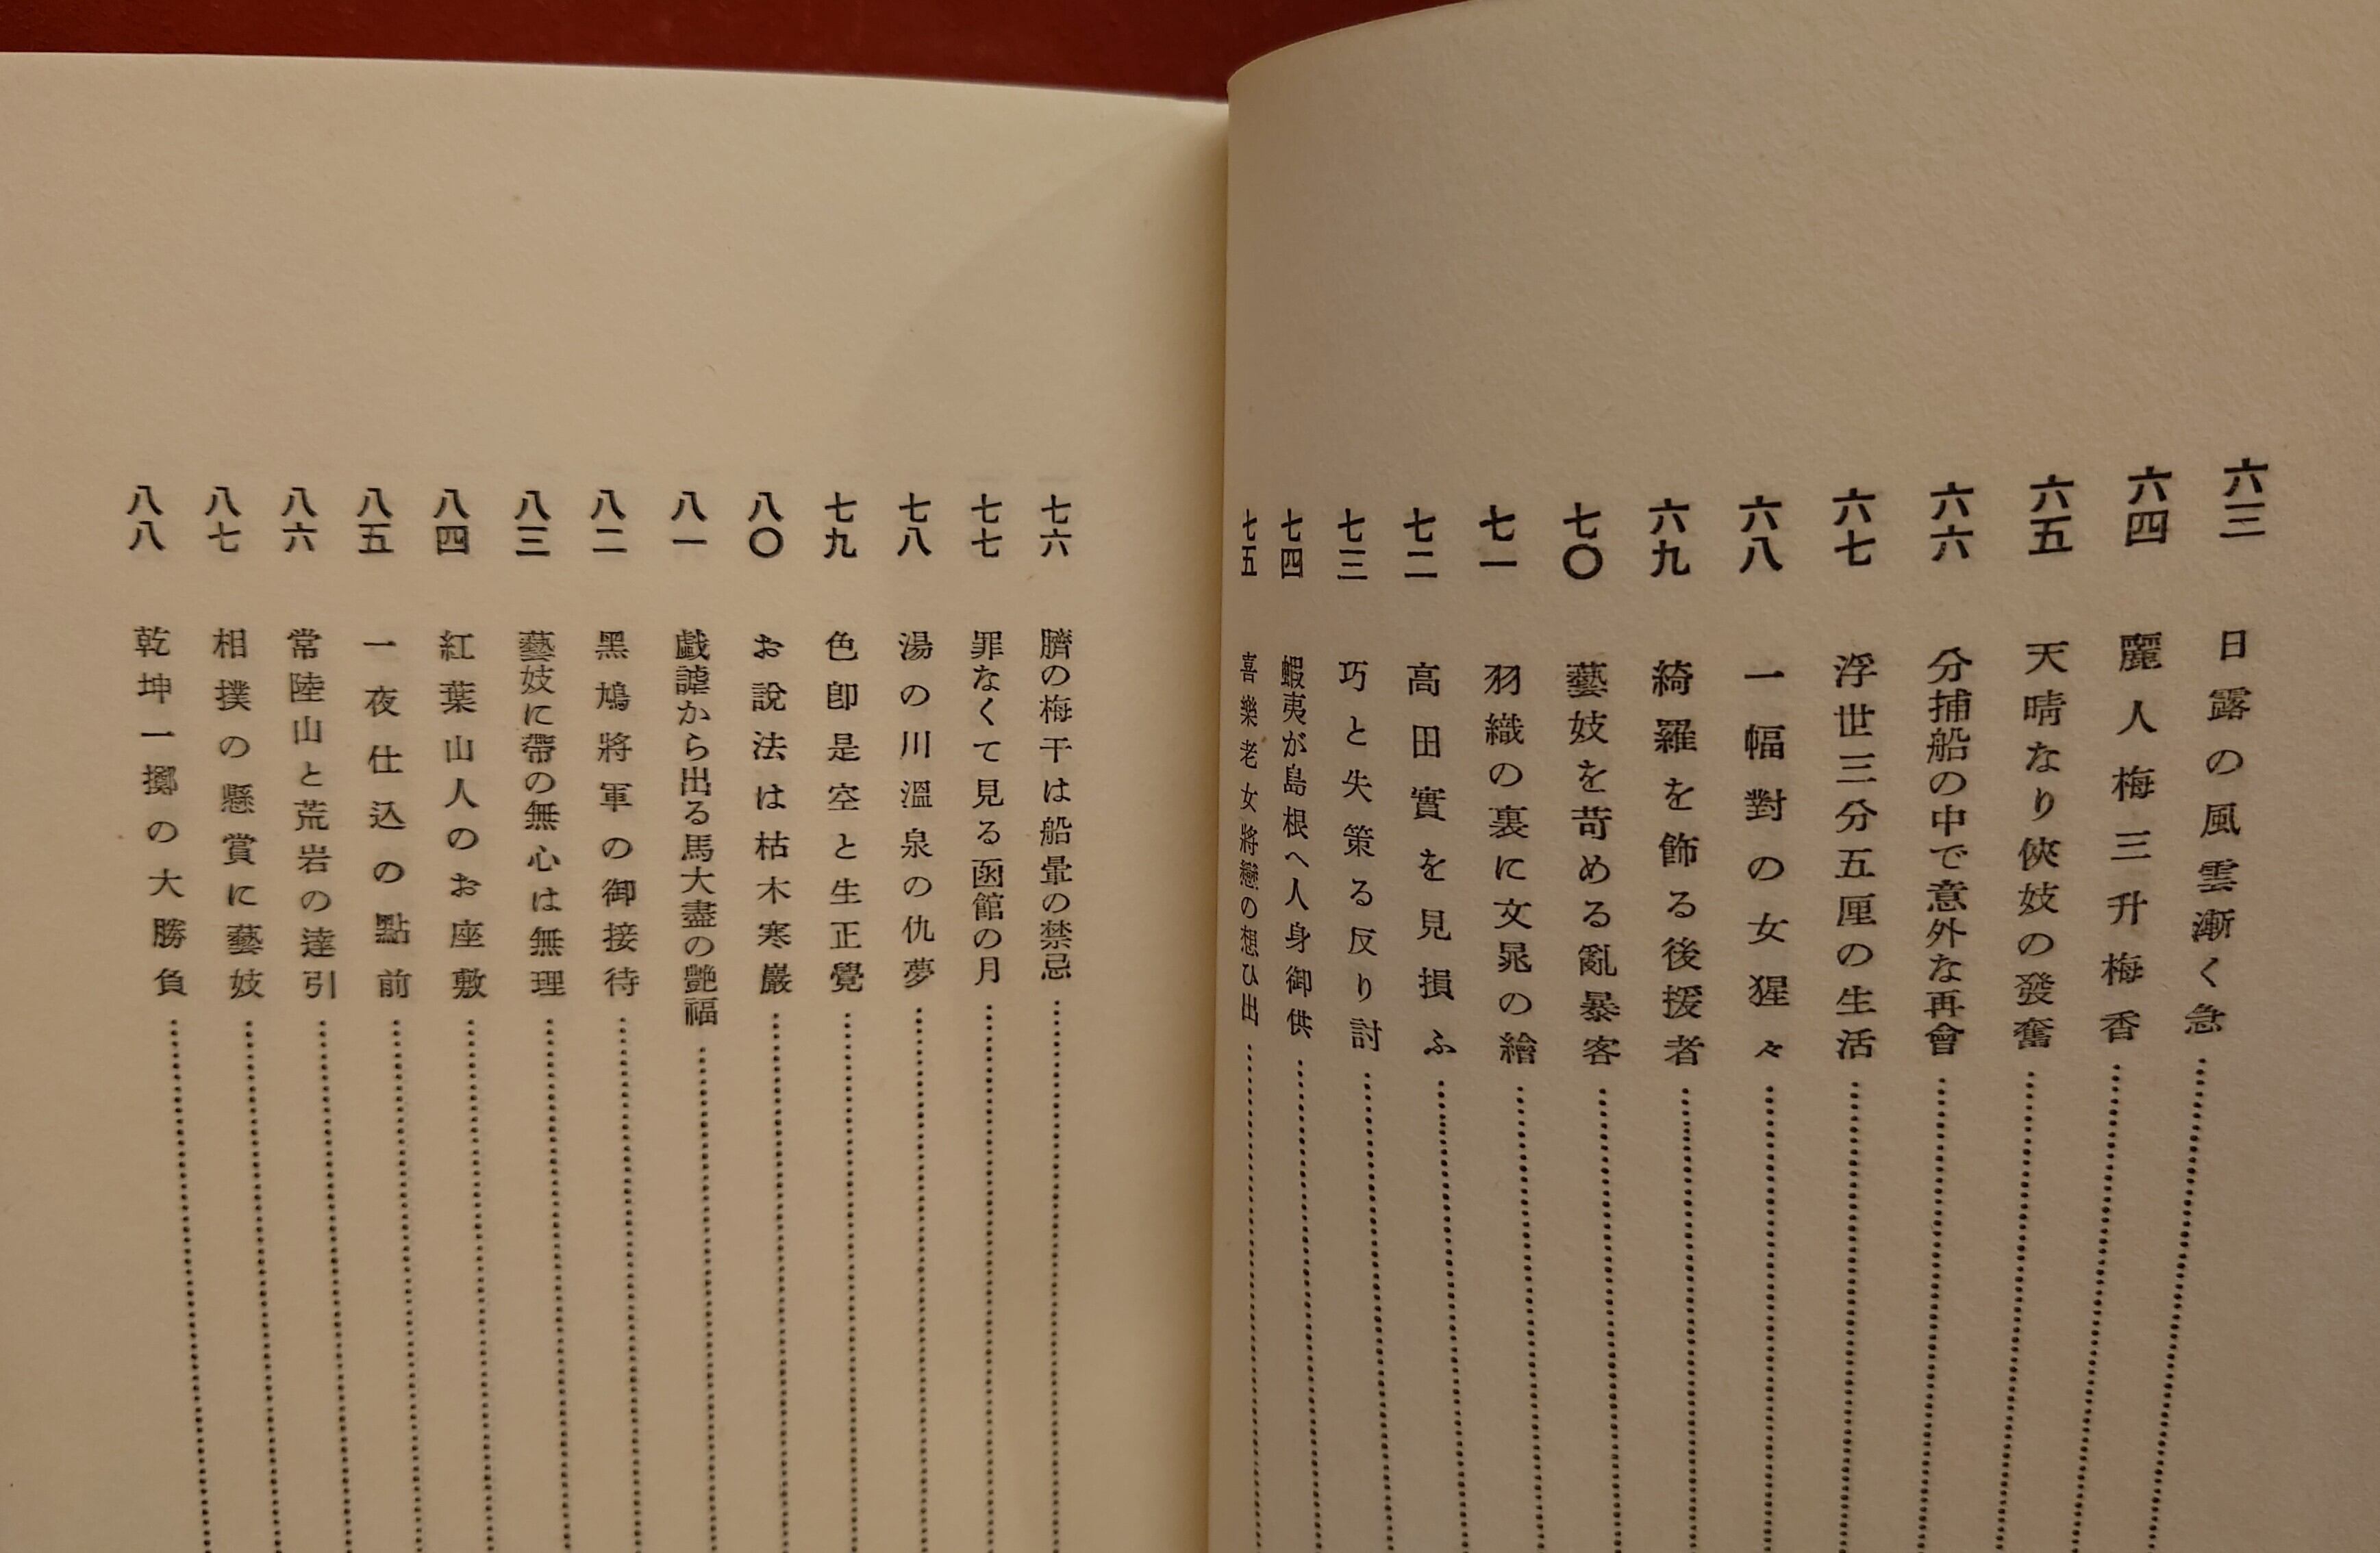 六三 日露の風雲漸く急
六四 麗人梅三升梅香
六五 天晴なり俠妓の發奮
六六 分捕船の中で意外な再會
六七 浮世三分五厘の生活
六八 一幅對の女猩々
六九 綺羅を飾る後援者
七〇 藝妓を苛める亂暴客
七一 羽織の裏に文晁の繪
七二 高田實を見損ふ
七三 巧と失策る反り討
七四 蝦夷が島根へ人身御供
七五 喜樂老女將戀の想ひ出
七六 臍の梅干は船暈の禁忌
七七 罪なくて見る函館の月
七八 湯の川溫泉の仇夢
七九 色卽是空と生正覺
八〇 お說法は枯木寒巖
八一 戯謔から出る馬大盡の艶福
八二 黑鳩將軍の御接待
八三 藝妓に帶の無心は無理
八四 紅葉山人のお座敷
八五 一夜仕込の點前
八六 常陸山と荒岩の達引
八七 相撲の懸賞に藝妓
八八 乾坤一擲の大勝負